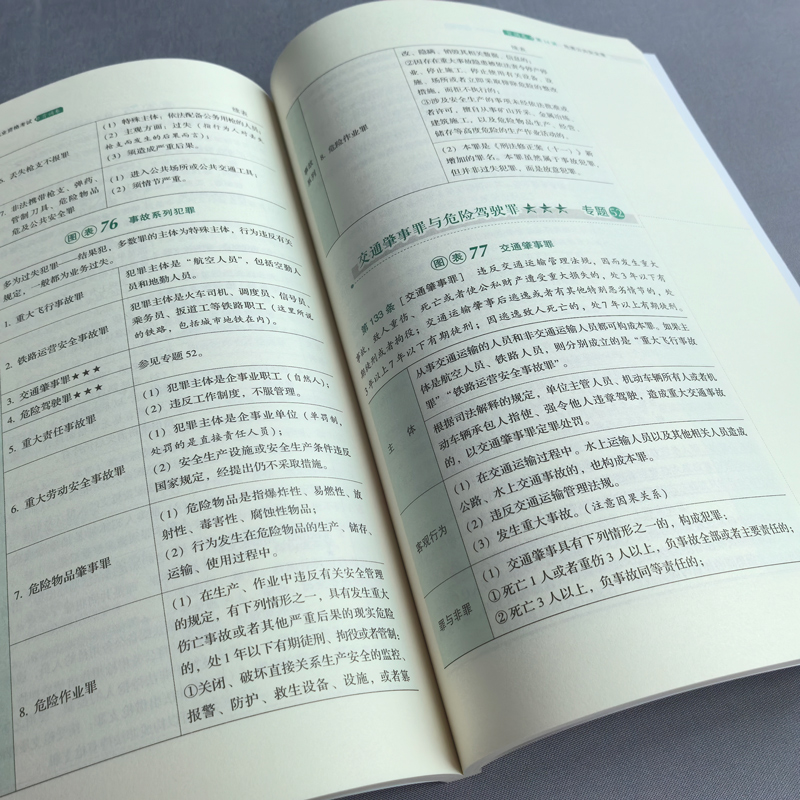 业资格考试
续表
5. 丢失枪支不报罪
(1) 特殊主体：依法配备公务用枪的人员；
(2) 主观方面：过失（指行为人对丢失
枪支而发生的后果而言）；
(3) 须造成严重后果。
7. 非法携带枪支、弹药、
管制刀具、危险物品
危及公共安全罪
(1) 进入公共场所或公共交通工具；
(2) 须情节严重。
图表 76 事故系列犯罪
多为过失犯罪——结果犯，多数罪的主体为特殊主体，行为违反有关
规定，一般都为业务过失。
1. 重大飞行事故罪
犯罪主体是“航空人员”，包括空勤人
员和地勤人员。
2. 铁路运营安全事故罪
犯罪主体是火车司机、调度员、信号员、
乘务员、扳道工等铁路职工（这里所说
的铁路，包括城市地铁在内）。
3. 交通肇事罪★★★
4. 危险驾驶罪★★★
参见专题 52。
5. 重大责任事故罪
(1) 犯罪主体是企事业职工（自然人）；
(2) 违反工作制度，不服管理。
6. 重大劳动安全事故罪
(1) 犯罪主体是企事业单位（单罚制，
处罚的是直接责任人员）；
(2) 安全生产设施或安全生产条件违反
国家规定，经提出仍不采取措施。
7. 危险物品肇事罪
(1) 危险物品是指爆炸性、易燃性、放
射性、毒害性、腐蚀性物品；
(2) 行为发生在危险物品的生产、储存、
运输、使用过程中。
8. 危险作业罪
(1) 在生产、作业中违反有关安全管理
的规定，有下列情形之一，具有发生重大
伤亡事故或者其他严重后果的现实危险
的，处1年以下有期徒刑、拘役或者管制：
①关闭、破坏直接关系生产安全的监控、
报警、防护、救生设备、设施，或者篡
续表
8. 危险作业罪
改、隐瞒、销毁其相关数据、信息的；
②因存在重大事故隐患被依法责令停产停
业、停止施工、停止使用有关设备、设
施、场所或者立即采取排除危险的整改
措施，而拒不执行的；
③涉及安全生产的事项未经依法批准或
者许可，擅自从事矿山开采、金属冶炼、
建筑施工，以及危险物品生产、经营、
储存等高度危险的生产作业活动的。
(2) 本罪是《刑法修正案（十一）》新
增加的罪名。本罪虽然属于事故犯罪，
但并非过失犯罪，而是故意犯罪。
交通肇事罪与危险驾驶罪★★★ 专题 52
图表 77 交通肇事罪
第133条［交通肇事罪］ 违反交通运输管理法规，因而发生重大
事故，致人重伤、死亡或者使公私财产遭受重大损失的，处3年以下有
期徒刑或者拘役；交通运输肇事后逃逸或者有其他特别恶劣情节的，处
3年以上7年以下有期徒刑；因逃逸致人死亡的，处7年以上有期徒刑。
主 体
从事交通运输的人员和非交通运输人员都可构成本罪。如果主
体是航空人员、铁路人员，则分别成立的是“重大飞行事故
罪”“铁路运营安全事故罪”。
根据司法解释的规定，单位主管人员、机动车辆所有人或者机
动车辆承包人指使、强令他人违章驾驶，造成重大交通事故
的，以交通肇事罪定罪处罚。
客观行为
(1) 在交通运输过程中。水上运输人员以及其他相关人员造成
公路、水上交通事故的，也构成本罪。
(2) 违反交通运输管理法规。
(3) 发生重大事故。（注意因果关系）
罪与非罪
(1) 交通肇事具有下列情形之一的，构成犯罪：
①死亡1人或者重伤3人以上，负事故全部或者主要责任的；
②死亡3人以上，负事故同等责任的；